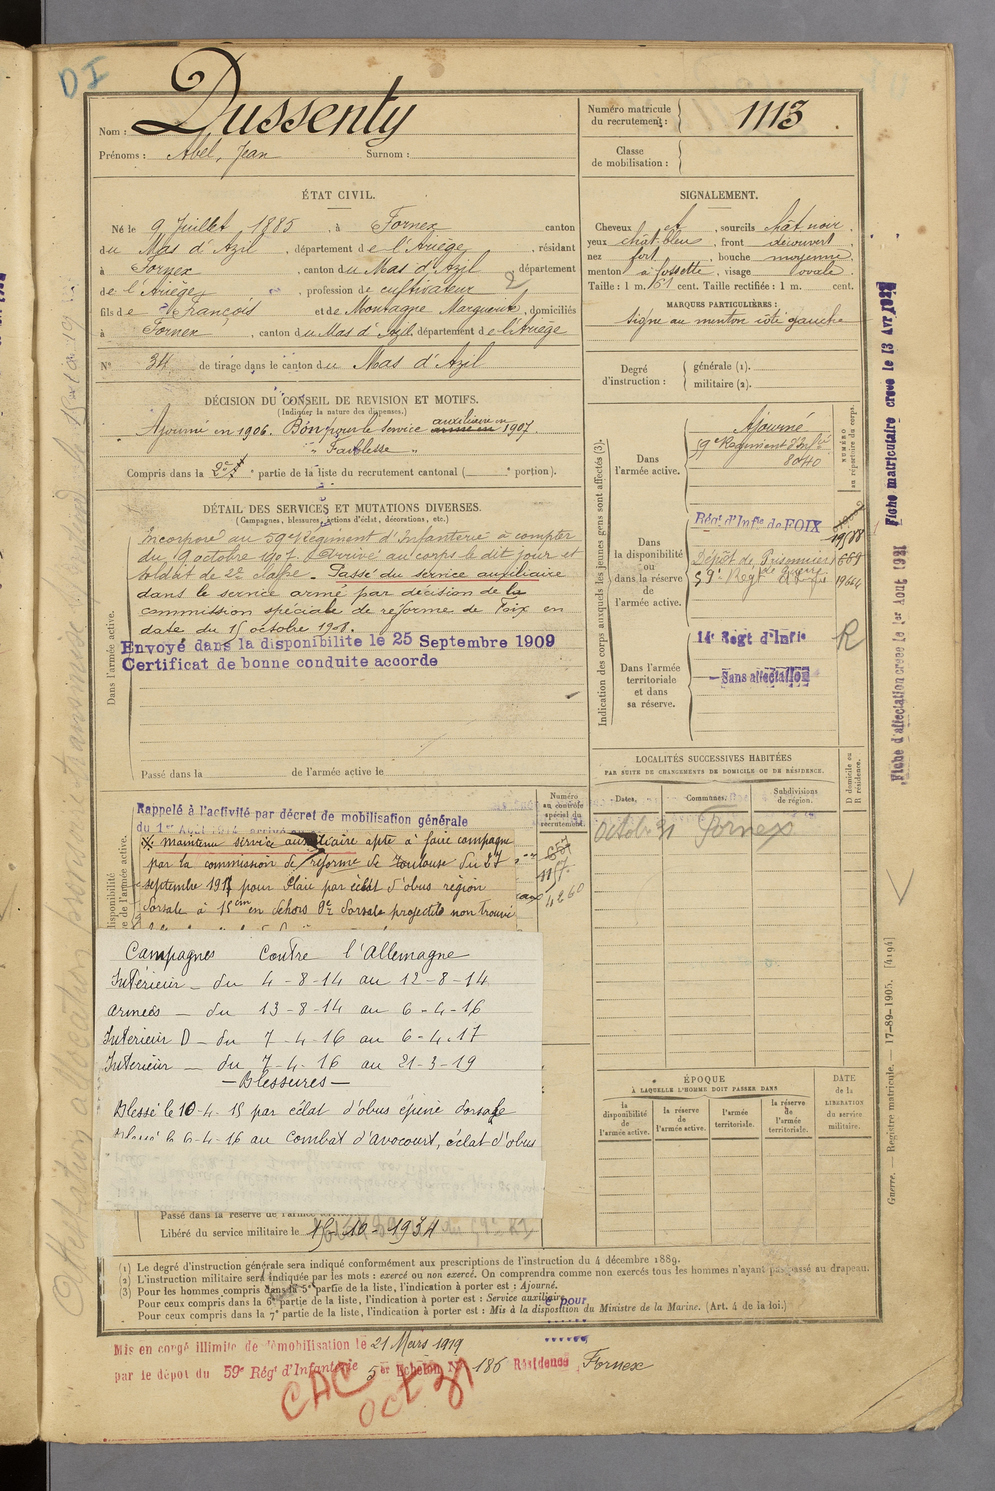 DI
Nom : Dussenty
Prénoms : Abel, Jean Surnom :
Numéro matricule du recrutement : 1113
Classe de mobilisation :
ÉTAT CIVIL.
Né le 9 Juillet 1885, à Fornex canton
du Mas d'Azil, département de l'Ariège, résidant
à Fornex, canton du Mas d'Azil département
de l'Ariège, profession de cultivateur
fils de François et de Montagne Marguerite, domiciliés
à Fornex, canton du Mas d'Azil, département de l'Ariège
2
N° 34 de tirage dans le canton du Mas d'Azil
DÉCISION DU CONSEIL DE REVISION ET MOTIFS.
(Indiquer la nature des dispenses.)
Ajourné en 1906. Bon pour le service auxiliaire en 1907.
" Faiblesse "
Compris dans la 2e partie de la liste du recrutement cantonal ( e portion).
DÉTAIL DES SERVICES ET MUTATIONS DIVERSES.
(Campagnes, blessures, actions d'éclat, décorations, etc.)
Dans l'armée active.
Incorporé au 59e Régiment d'Infanterie à compter
du 9 octobre 1907. Arrivé au corps le dit jour et
soldat de 2e classe. Passé du service auxiliaire
dans le service armé par décision de la
commission spéciale de réforme de Foix en
date du 15 octobre 1908.
Envoyé dans la disponibilité le 25 Septembre 1909
Certificat de bonne conduite accorde
Passé dans la de l'armée active le
Numéro au contrôle spécial du recrutement.
Rappelé à l'activité par décret de mobilisation générale
du 1er Août 1914 arrivé au
maintenu service auxiliaire apte à faire campagne
par la commission de réforme de Toulouse du 27
septembre 1917 pour plaie par éclat d'obus région
dorsale à 15cm en dehors de dorsale projectile non trouvé
657
1157
4260
Campagnes contre l'Allemagne
Intérieur – du 4-8-14 au 12-8-14
armées – du 13-8-14 au 6-4-16
Intérieur D – du 7-4-16 au 6-4-17
Intérieur – du 7-4-16 au 21-3-19
– Blessures –
Blessé le 10-4-15 par éclat d'obus épine dorsale
Blessé le 6-4-16 au combat d'avocourt, éclat d'obus
Passé dans la réserve de l'armée territoriale
Libéré du service militaire le 15-10-1934
SIGNALEMENT.
Cheveux et, sourcils chât noir,
yeux chât-bleu, front découvert,
nez fort, bouche moyenne,
menton à fossette, visage ovale.
Taille : 1 m. 61 cent. Taille rectifiée : 1 m. cent.
MARQUES PARTICULIÈRES :
signe au menton côté gauche
Degré d'instruction : générale (1).
militaire (2).
Indication des corps auxquels les jeunes gens sont affectés (3).
NUMÉRO au répertoire du corps.
Dans l'armée active.
Ajourné
59e Régiment d'Infie
8040
Dans la disponibilité ou dans la réserve de l'armée active.
Régt d'Infie de FOIX
Dépôt de Prisonniers de guerre 669
59e Regt d'Infie 19644
Dans l'armée territoriale et dans sa réserve.
14e Regt d'Infie R
— Sans affectation
LOCALITÉS SUCCESSIVES HABITÉES
PAR SUITE DE CHANGEMENTS DE DOMICILE OU DE RÉSIDENCE.
Dates. Communes. Subdivisions de région. D domicile ou R résidence.
Octob 31 Fornex
ÉPOQUE
À LAQUELLE L'HOMME DOIT PASSER DANS
la disponibilité de l'armée active. la réserve de l'armée active. l'armée territoriale. la réserve de l'armée territoriale.
DATE de la LIBÉRATION du service militaire.
(1) Le degré d'instruction générale sera indiqué conformément aux prescriptions de l'instruction du 4 décembre 1889.
(2) L'instruction militaire sera indiquée par les mots : exercé ou non exercé. On comprendra comme non exercés tous les hommes n'ayant pas passé au drapeau.
(3) Pour les hommes compris dans la 5e partie de la liste, l'indication à porter est : Ajourné.
Pour ceux compris dans la 6e partie de la liste, l'indication à porter est : Service auxiliaire.
Pour ceux compris dans la 7e partie de la liste, l'indication à porter est : Mis à la disposition du Ministre de la Marine. (Art. 4 de la loi.)
Mis en congé illimité de démobilisation le 21 Mars 1919
par le dépôt du 59e Régt d'Infanterie 5er Echelon N° 186 Résidence Fornex
CAC
OCT 31
Fiche matriculaire créée le 13 Avr
Fiche d'affectation créée le 1er Aout 1921
Guerre. — Registre matricule. — 17-89-1905. [4194]